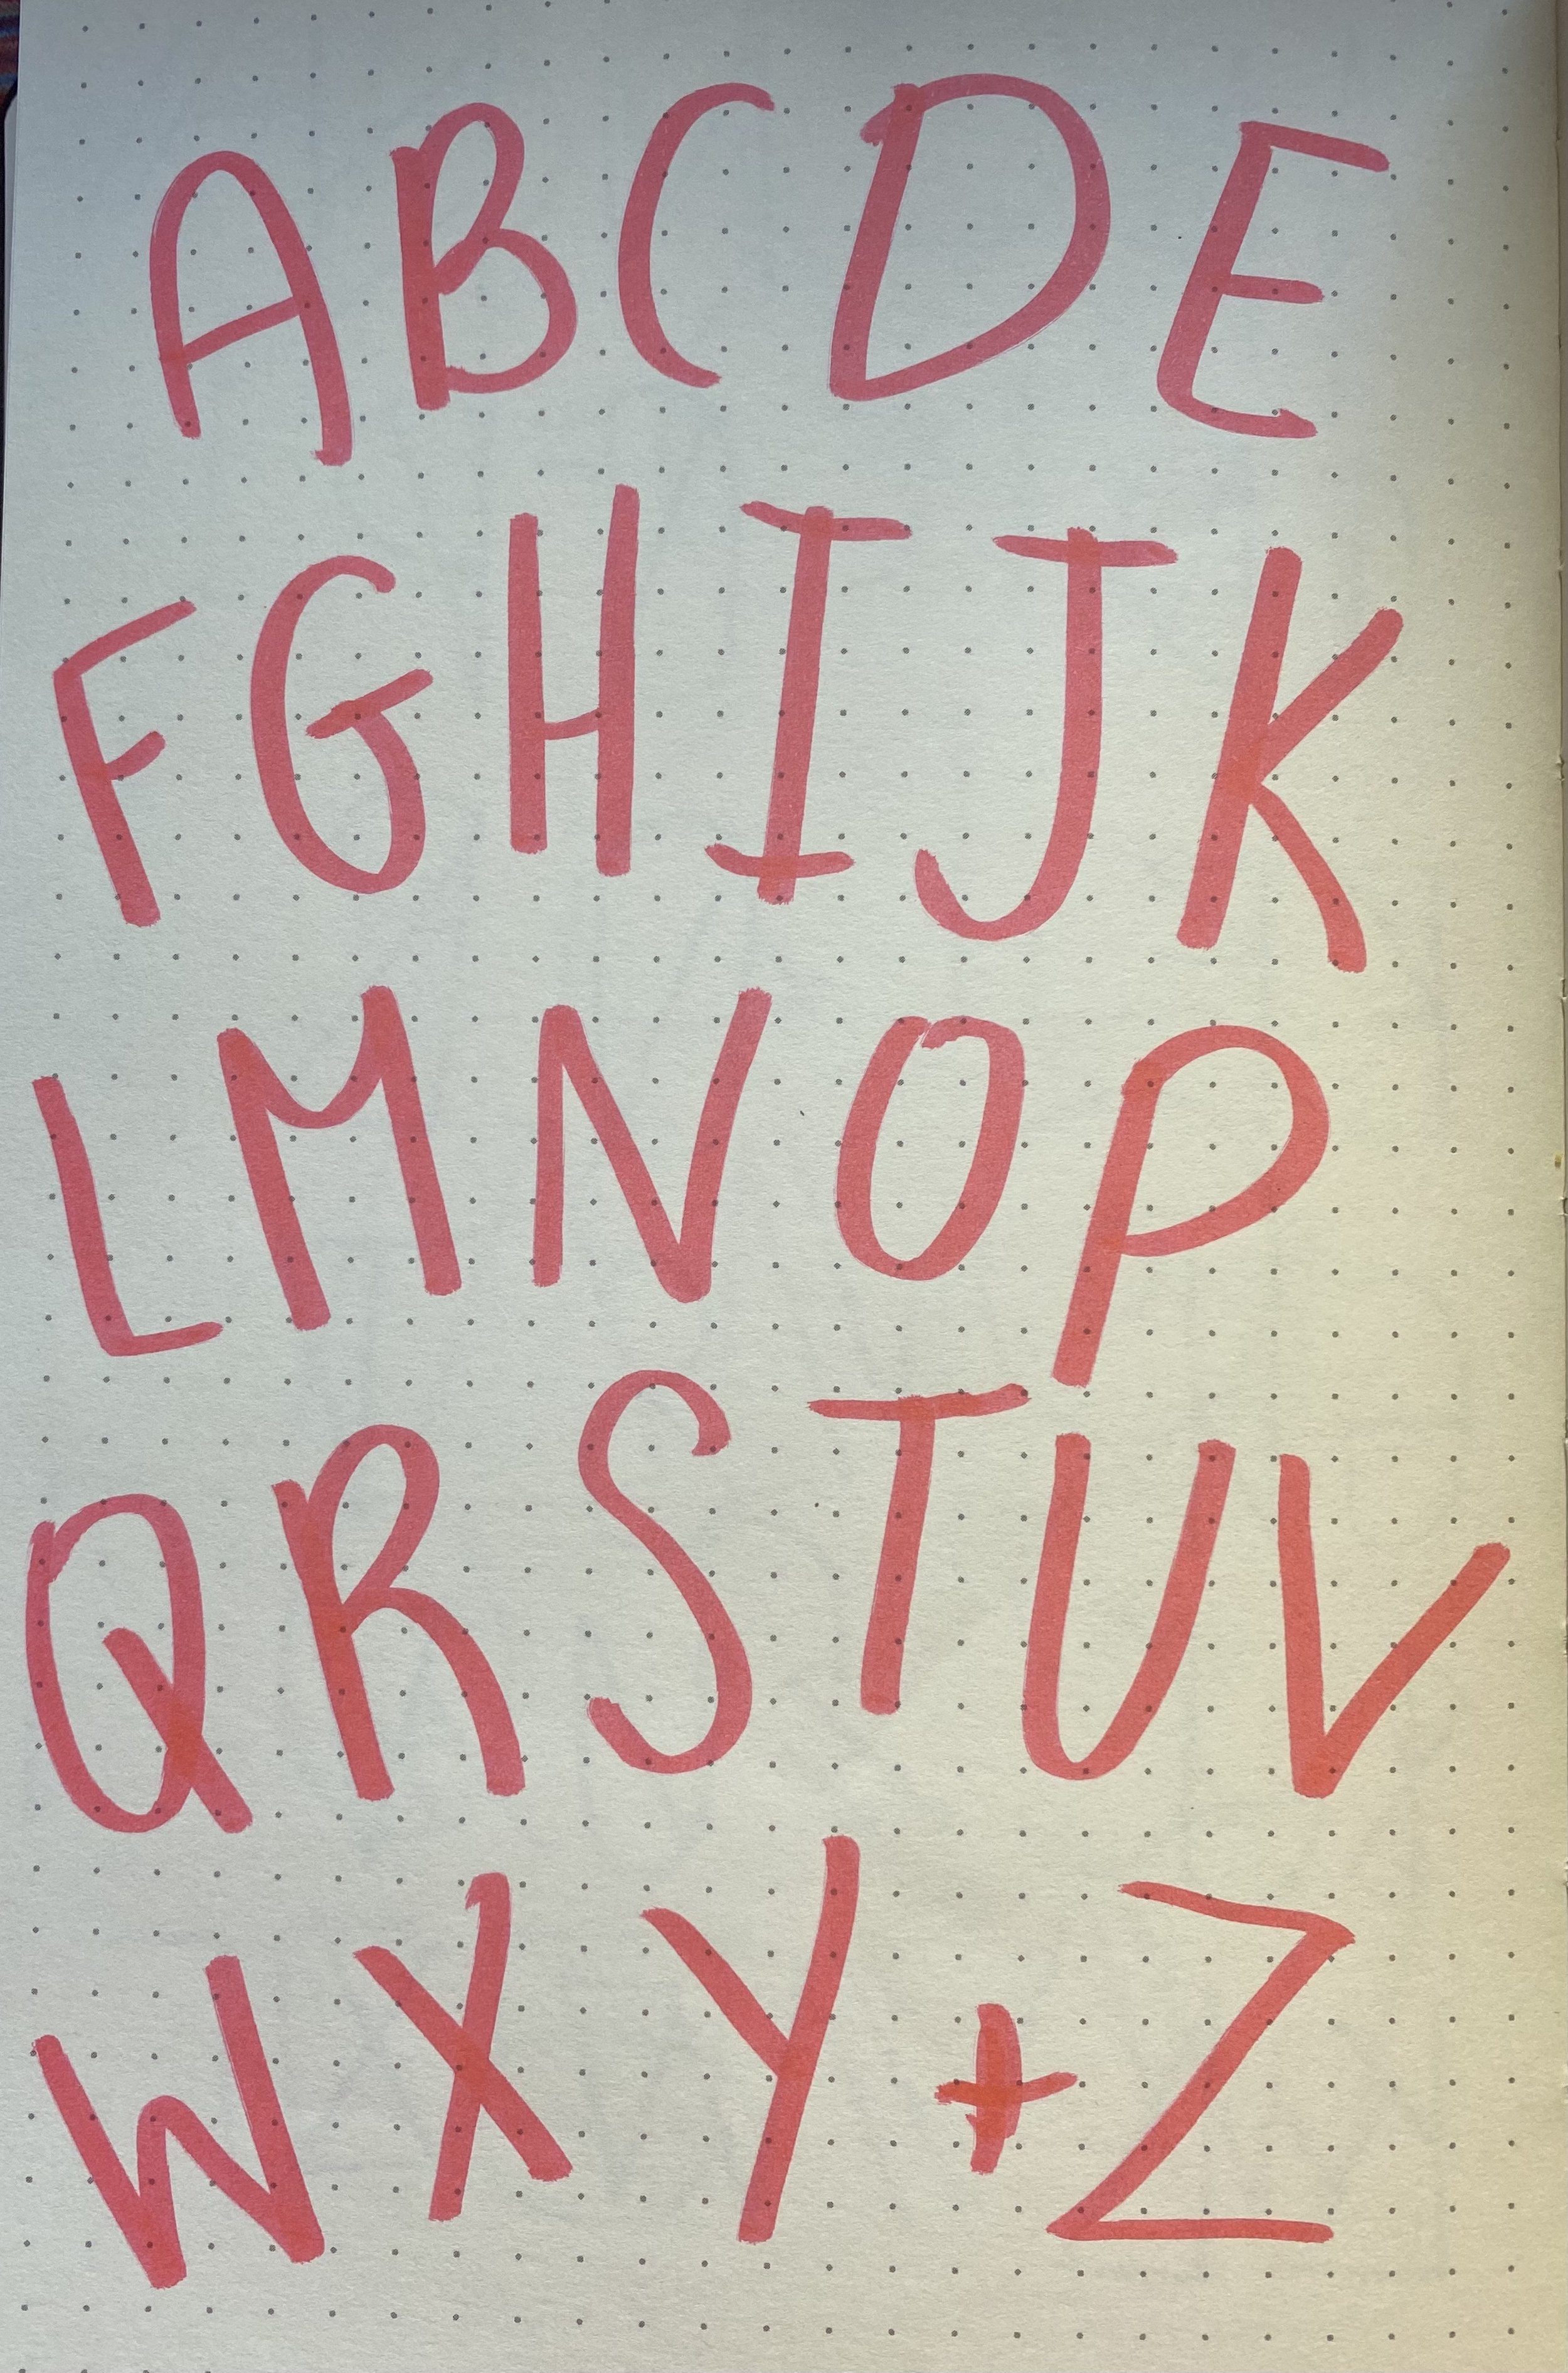 A B C D E
F G H I J K
L M N O P
Q R S T U V
W X Y + Z